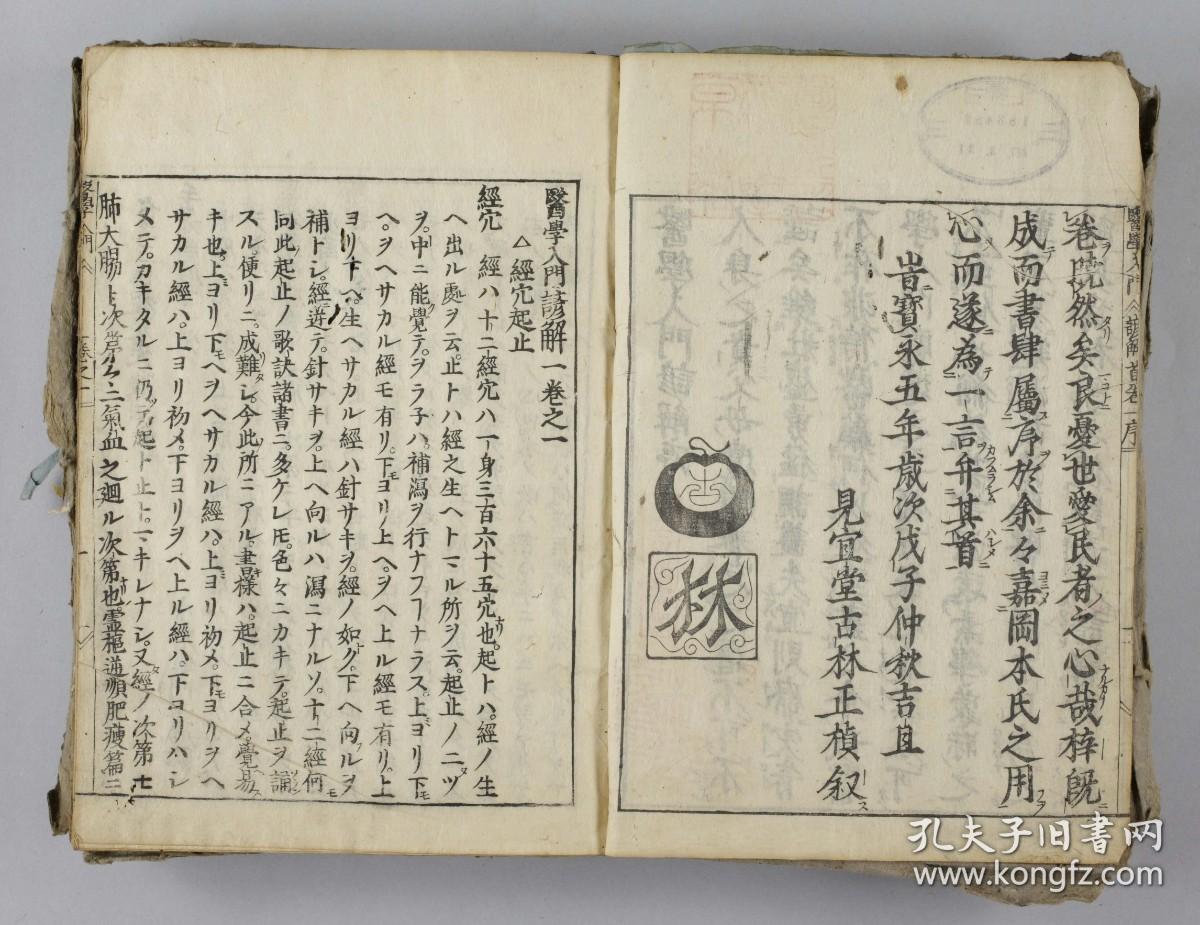 卷曉然矣良憂世愛民者之心哉梓既
成而書肆屬序於余々嘉岡本氏之用
心而遂為一言弁其首
旹寶永五年歲次戊子仲秋吉旦
見宜堂古林正禎叙
林
醫學入門諺解一卷之一
△經穴起止
經穴 經ハ十二經穴ハ一身三百六十五穴也起トハ經ノ生
ヘ出ル處ヲ云止トハ經之生ヘトマル所ヲ云起止ノ二ツ
ヲ中ニ能覺テヲラ子ハ補瀉ヲ行ナフ事ナラス上ヨリ下
ヘヲヘサカル經モ有リ下ヨリ上ヘヲヘ上ル經モ有リ上
ヨリ下ヘ生ヘサカル經ハ針サキヲ經ノ如ク下ヘ向ルヲ
補トシ經逆テ針サキヲ上ヘ向ルハ瀉ニナルソ十二經何
同此起止ノ歌訣諸書ニ多ケレ圧色々ニカキテ起止ヲ誦
スル便リニ成難シ今此所ニアル書樣ハ起止ニ合メ覺易
キ也上ヨリ下ヘヲヘサカル經ハ上ヨリ初メ下ヨリヲヘ
サカル經ハ上ヨリ初メ下ヨリヲヘ上ル經ハ下ヨリハシ
メテカキタルニ仍テ起ト止トマキレナシ又經ノ次第モ
肺大腸ト次第スルニ氣血之廻ル次第也靈樞逆順肥瘦篇ニ
孔夫子旧书网
www.kongfz.com